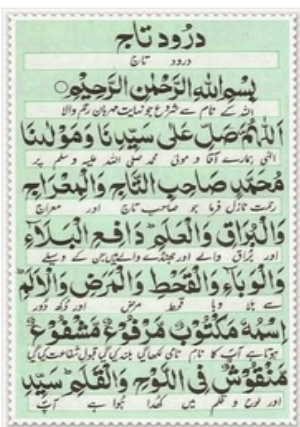 درود تاج
درود تاج
بِسْمِ اللّٰهِ الرَّحْمٰنِ الرَّحِيْمِ
اللہ کے نام سے شروع جو نہایت مہربان رحم والا
اَللّٰهُمَّ صَلِّ عَلٰى سَيِّدِنَا وَمَوْلٰىنَا
الٰہی ہمارے آقا و مولیٰ محمد صلی اللہ علیہ وسلم پر
مُحَمَّدٍ صَاحِبِ التَّاجِ وَالْمِعْرَاجِ
رحمت نازل فرما جو صاحب تاج اور معراج
وَالْبُرَاقِ وَالْعَلَمِ دَافِعِ الْبَلَاءِ
اور براق والے اور جھنڈے والے ہیں جن کے وسیلے
وَالْوَبَاءِ وَالْقَحْطِ وَالْمَرَضِ وَالْاَلَمِ
سے بلا وبا قحط مرض اور دکھ دور
اِسْمُهٗ مَكْتُوْبٌ مَّرْفُوْعٌ مَّشْفُوْعٌ
ہوتا ہے آپ کا نام نامی لکھا گیا بلند کیا گیا قبول شفاعت کیا گیا
مَّنْقُوْشٌ فِى اللَّوْحِ وَالْقَلَمِ سَيِّدِ
اور لوح و قلم میں کھدا ہوا ہے آپ